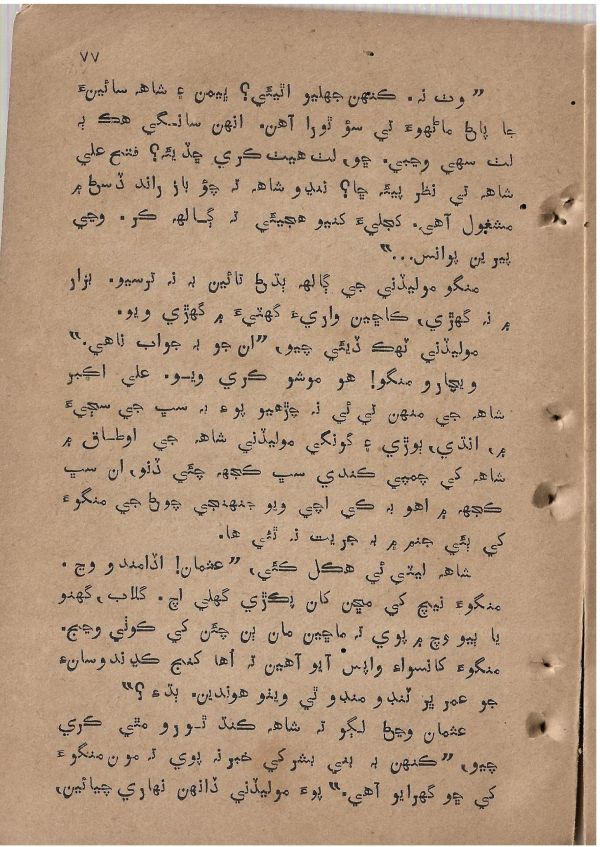 ۷۷
”وٺ نہ. ڪنهن جهليو اٿيئي؟ ڀيمن ۽ شاهہ سائين۽
جا پاڻ ماڻهو۽ تي سؤ ٿورا آهن. انهن سانگي هڪ ٻہ
لٺ سهي وڃبي. ڇو، لٺ هيٺ ڪري ڇڏيئہ؟ فتح علي
شاهہ تي نظر پيئہ ڇا؟ ننڍو شاهہ تہ ڇؤ ٻاز راند ڏسڻ ۾
مشغول آهي. کجلي۽ کنيو هجيئي تہ ڳالهہ ڪر. وڃي
پيرين پوانس...“
منگو موليڏني جي ڳالهہ ٻڌڻ تائين بہ نہ ترسيو. بزار
۾ نہ گهڙي، ڪاڇين واري۽ گهٽي۽ ۾ گهڙي ويو.
موليڏني ٽهڪ ڏيئي چيو، ”ان جو بہ جواب ناهي.“
ويچارو منگو! هو موشو ڪري ويو. علي اڪبر
شاهہ جي منهن تي ئي نہ چڙهيو پوء بہ سڀ جي سڃي۽
۾، انڌي، ٻوڙي ۽ گونگي موليڏني شاهہ جي اوطاق ۾
شاهہ کي چمپي ڪندي سڀ ڪجهہ چئي ڏنو، ان سڀ
ڪجهہ ۾ اهو بہ کي اچي ويو جنهنجي چوڻ جي منگو۽
کي ٻئي جنم ۾ بہ جريت نہ ٿئي ها.
شاهہ ليٽي ئي هڪل ڪئي، ”عثمان! اڏامندو وڃ.
منگو۽ نيچ کي مڇن کان پڪڙي گهلي اچ. گلاب، گهنو
يا ٻيو وچ ۾ پوي تہ ماڇين مان ٻن چئن کي ڪوٺي وڃج.
منگو۽ کانسواء واپس آيو آهين تہ اُها کنڊ ڪڍندوسان۽
جو عمر ڀر ٽنڊو منڊو ٿي ويٺو هوندين. ٻڌء؟“
عثمان وڃڻ لڳو تہ شاهہ ڪنڌ ٿورو مٿي ڪري
چيو، ”ڪنهن بہ ٻئي بشر کي خبر نہ پوي تہ مون منگو۽
کي ڇو گهرايو آهي.“ پوء موليڏني ڏانهن نهاري چيائين،